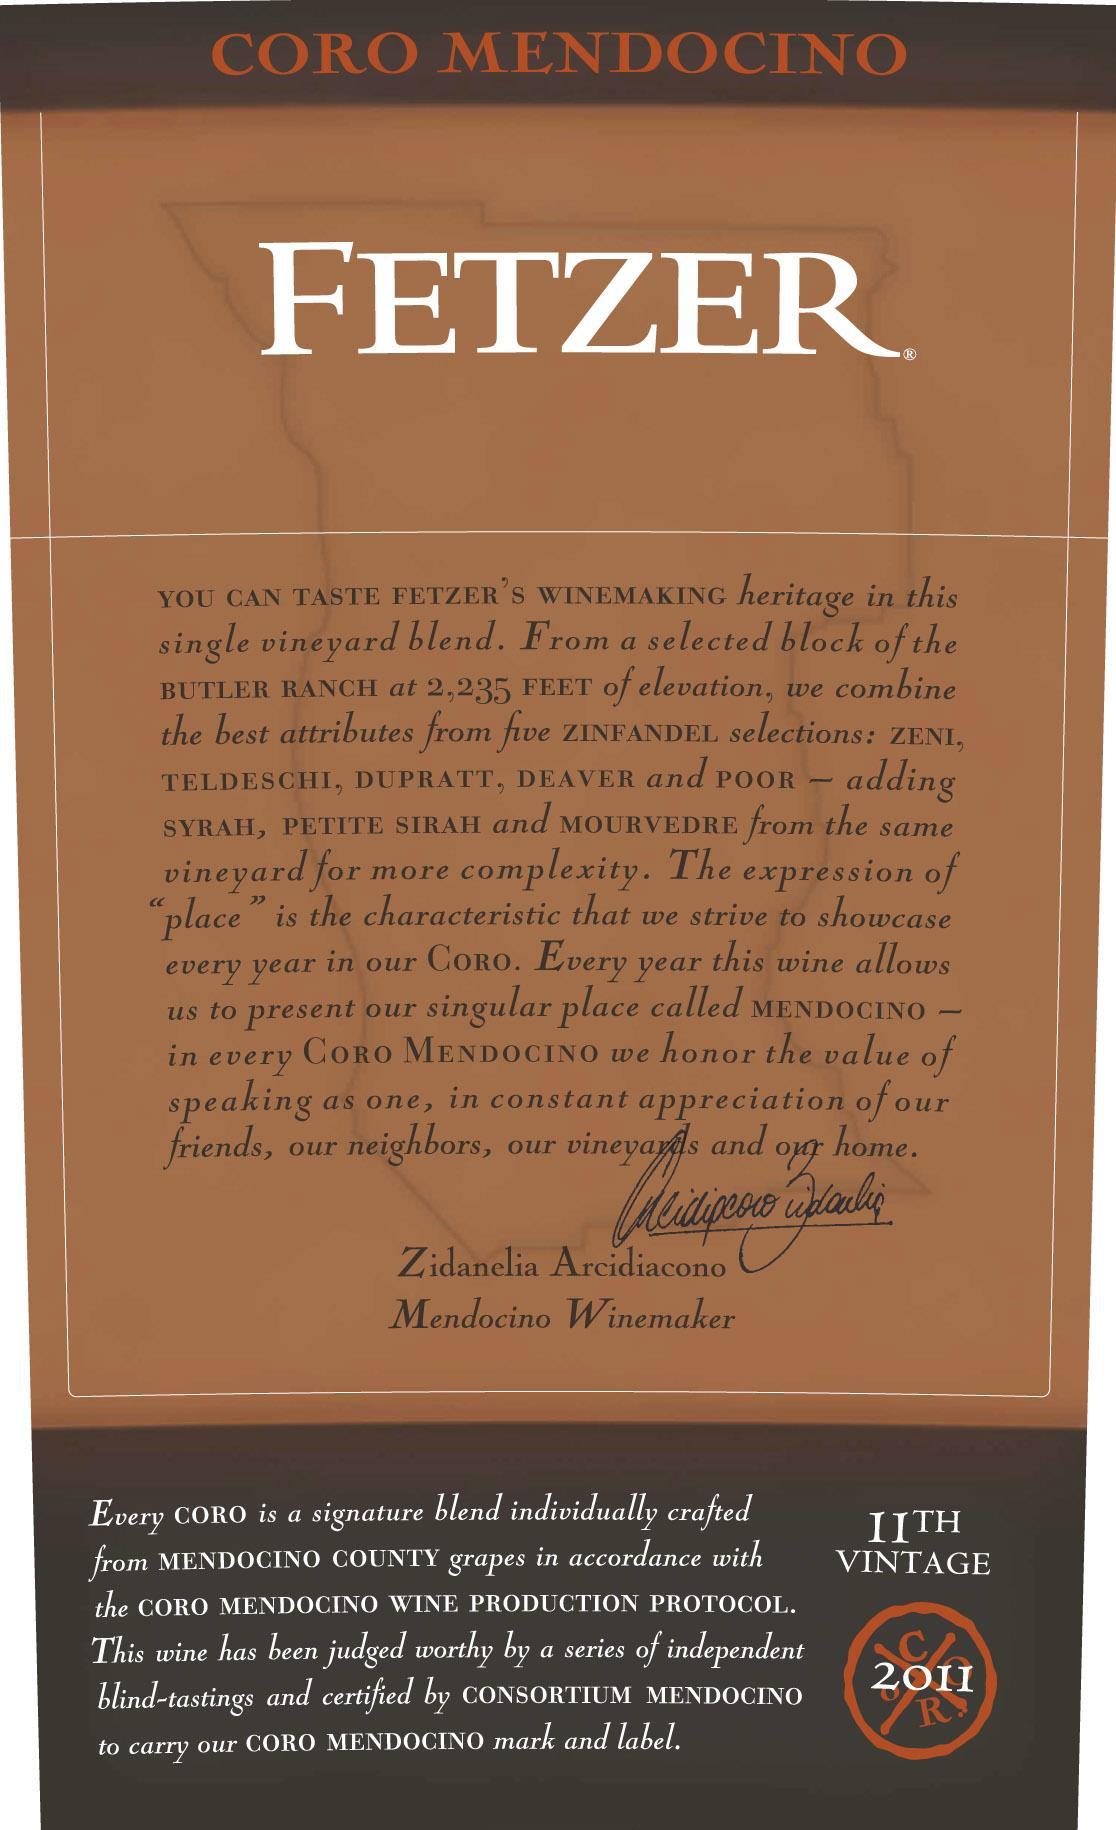 CORO MENDOCINO
FETZER®
YOU CAN TASTE FETZER'S WINEMAKING heritage in this
single vineyard blend. From a selected block of the
BUTLER RANCH at 2,235 FEET of elevation, we combine
the best attributes from five ZINFANDEL selections: ZENI,
TELDESCHI, DUPRATT, DEAVER and POOR – adding
SYRAH, PETITE SIRAH and MOURVEDRE from the same
vineyard for more complexity. The expression of
“place” is the characteristic that we strive to showcase
every year in our CORO. Every year this wine allows
us to present our singular place called MENDOCINO –
in every CORO MENDOCINO we honor the value of
speaking as one, in constant appreciation of our
friends, our neighbors, our vineyards and our home.
Arcidiacono Zidanelia
Zidanelia Arcidiacono
Mendocino Winemaker
Every CORO is a signature blend individually crafted
from MENDOCINO COUNTY grapes in accordance with
the CORO MENDOCINO WINE PRODUCTION PROTOCOL.
This wine has been judged worthy by a series of independent
blind-tastings and certified by CONSORTIUM MENDOCINO
to carry our CORO MENDOCINO mark and label.
11TH
VINTAGE
CORO
2011